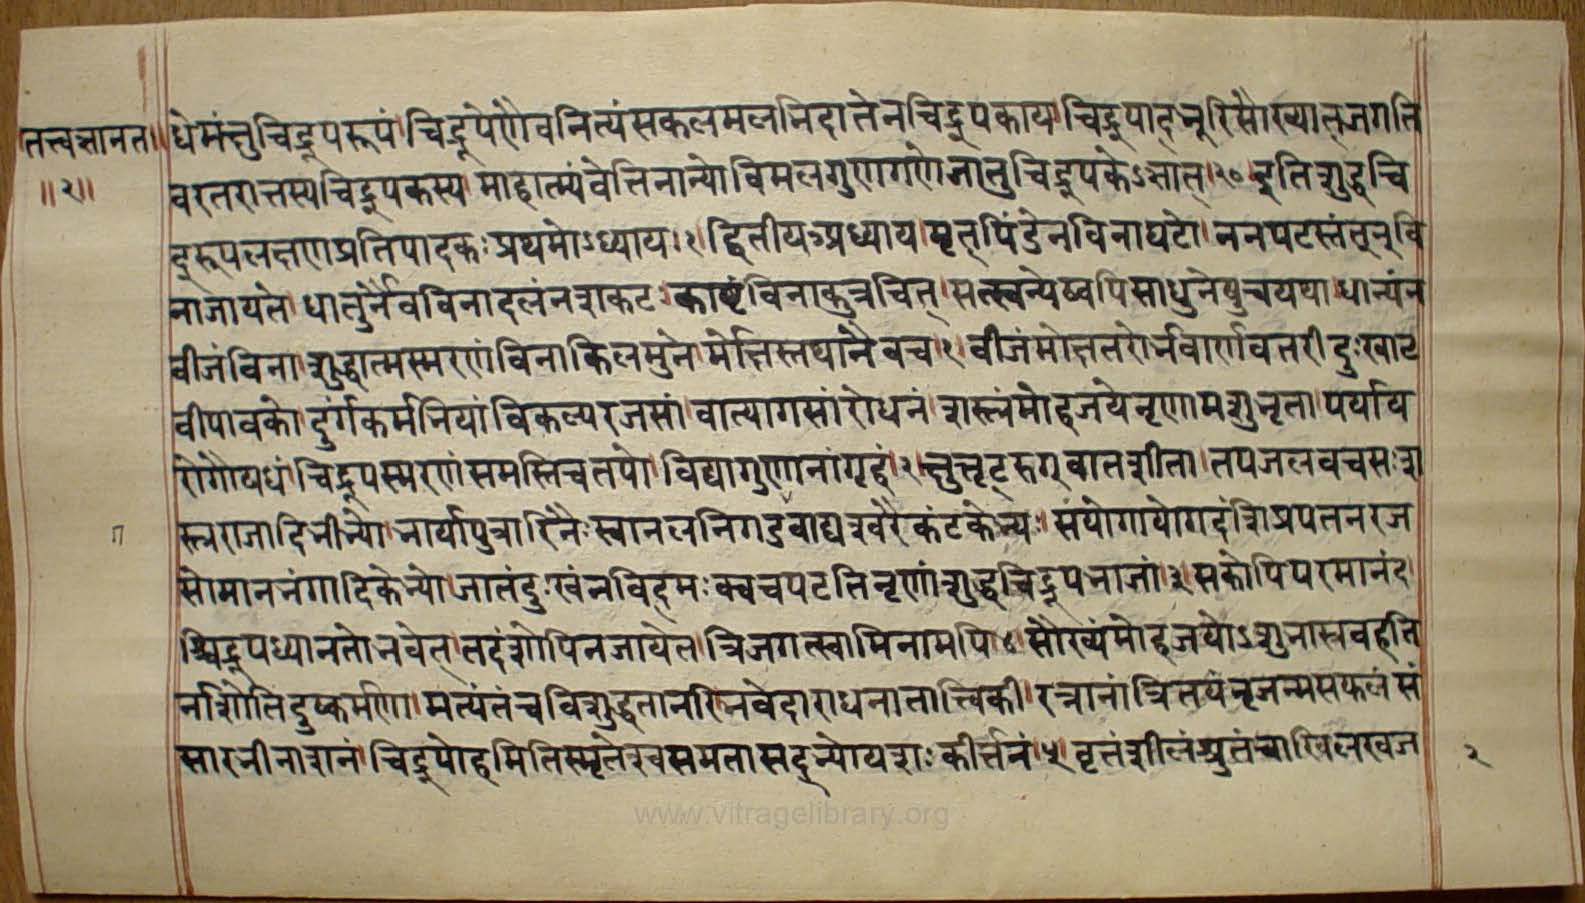 तत्त्वज्ञानत॥ धेमंत्तुचिद्रूपरूपं।चिद्रूपेणैवनित्यंसकलमलनिदातेनचिद्रूपकाय।चिद्रूपाद्भूरिसौख्यात्जगति
॥२॥ वरतरात्तस्यचिद्रूपकस्य।माहात्म्यंवेत्तिनान्योविमलगुणगणेजातुचिद्रूपकेऽज्ञात्।२०।इतिशुद्धचि
द्रूपलक्षणप्रतिपादकःप्रथमोऽध्याय।१।द्वितीयऽप्रध्याय।मृत्पिंडेनविनाघटो।ननपटस्तंतून्वि
नाजायते।धातुर्नैवविनादलंनशकटः।काष्टंविनाकुत्रचित्।सत्स्वन्येष्वपिसाधुनेषुचयथा।धान्यंन
बीजंविना।शुद्धात्मस्मरणंविनाकिलमुनेर्मोक्षस्तथानैवच।१।बीजंमोक्षतरोर्भवार्णवतरी।दुःखाट
वीपावको।दुर्गकर्मभियांविकल्परजसां।वात्यागसांरोधनं।शस्त्रंमोहजयेनृणामशुभता।पर्याय
रोगौषधं।चिद्रूपस्मरणंसमस्तिचतपो।विद्यागुणानांगृहं।२।क्षुत्तृट्रुग्वातशीता।तपजलवचसःश
स्त्रराजादिभीभ्यो।भार्यापुत्रारिनैःस्वानलनिगडवाद्यश्वरैकंटकेभ्यः।संयोगायोगदंशिप्रपतनरज
सोमानभंगादिकेभ्यो।जातंदुःखंनविद्मःक्वचपटतिनृणांशुद्धचिद्रूपभाजां।३।सकोपिपरमानंद
श्चिद्रूपध्यानतोभवेत्।तदंशोपिनजायेत।त्रिजगत्स्वामिनामपि।४।सौख्यंमोहजयोऽशुभास्रवहति
र्नाशोतिदुष्कर्मणा।मत्यंतंचविशुद्धतानरिभवेदाराधनातात्त्विकी।रत्नानांत्रितयंनृजन्मसफलंसं
सारभीनाशनं।चिद्रूपोहमितिस्मृतेश्चसमतासद्भ्योयशःकीर्त्तनं।५।वृतंशीलंश्रुतंचाखिलखज
२
www.vitragelibrary.org